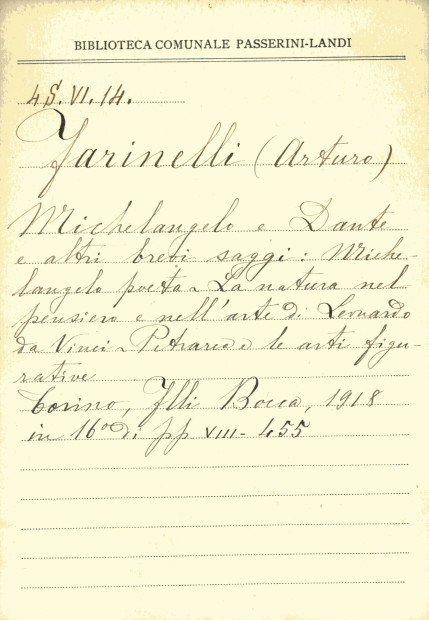 BIBLIOTECA COMUNALE PASSERINI-LANDI
4S. VI. 14.
Farinelli (Arturo)
Michelangelo e Dante
e altri brevi saggi: Miche-
langelo poeta - La natura nel
pensiero e nell'arte di Leonardo
da Vinci - Petrarca e le arti figu-
rative
Torino, Flli Bocca, 1918
in 16° di pp VIII-455